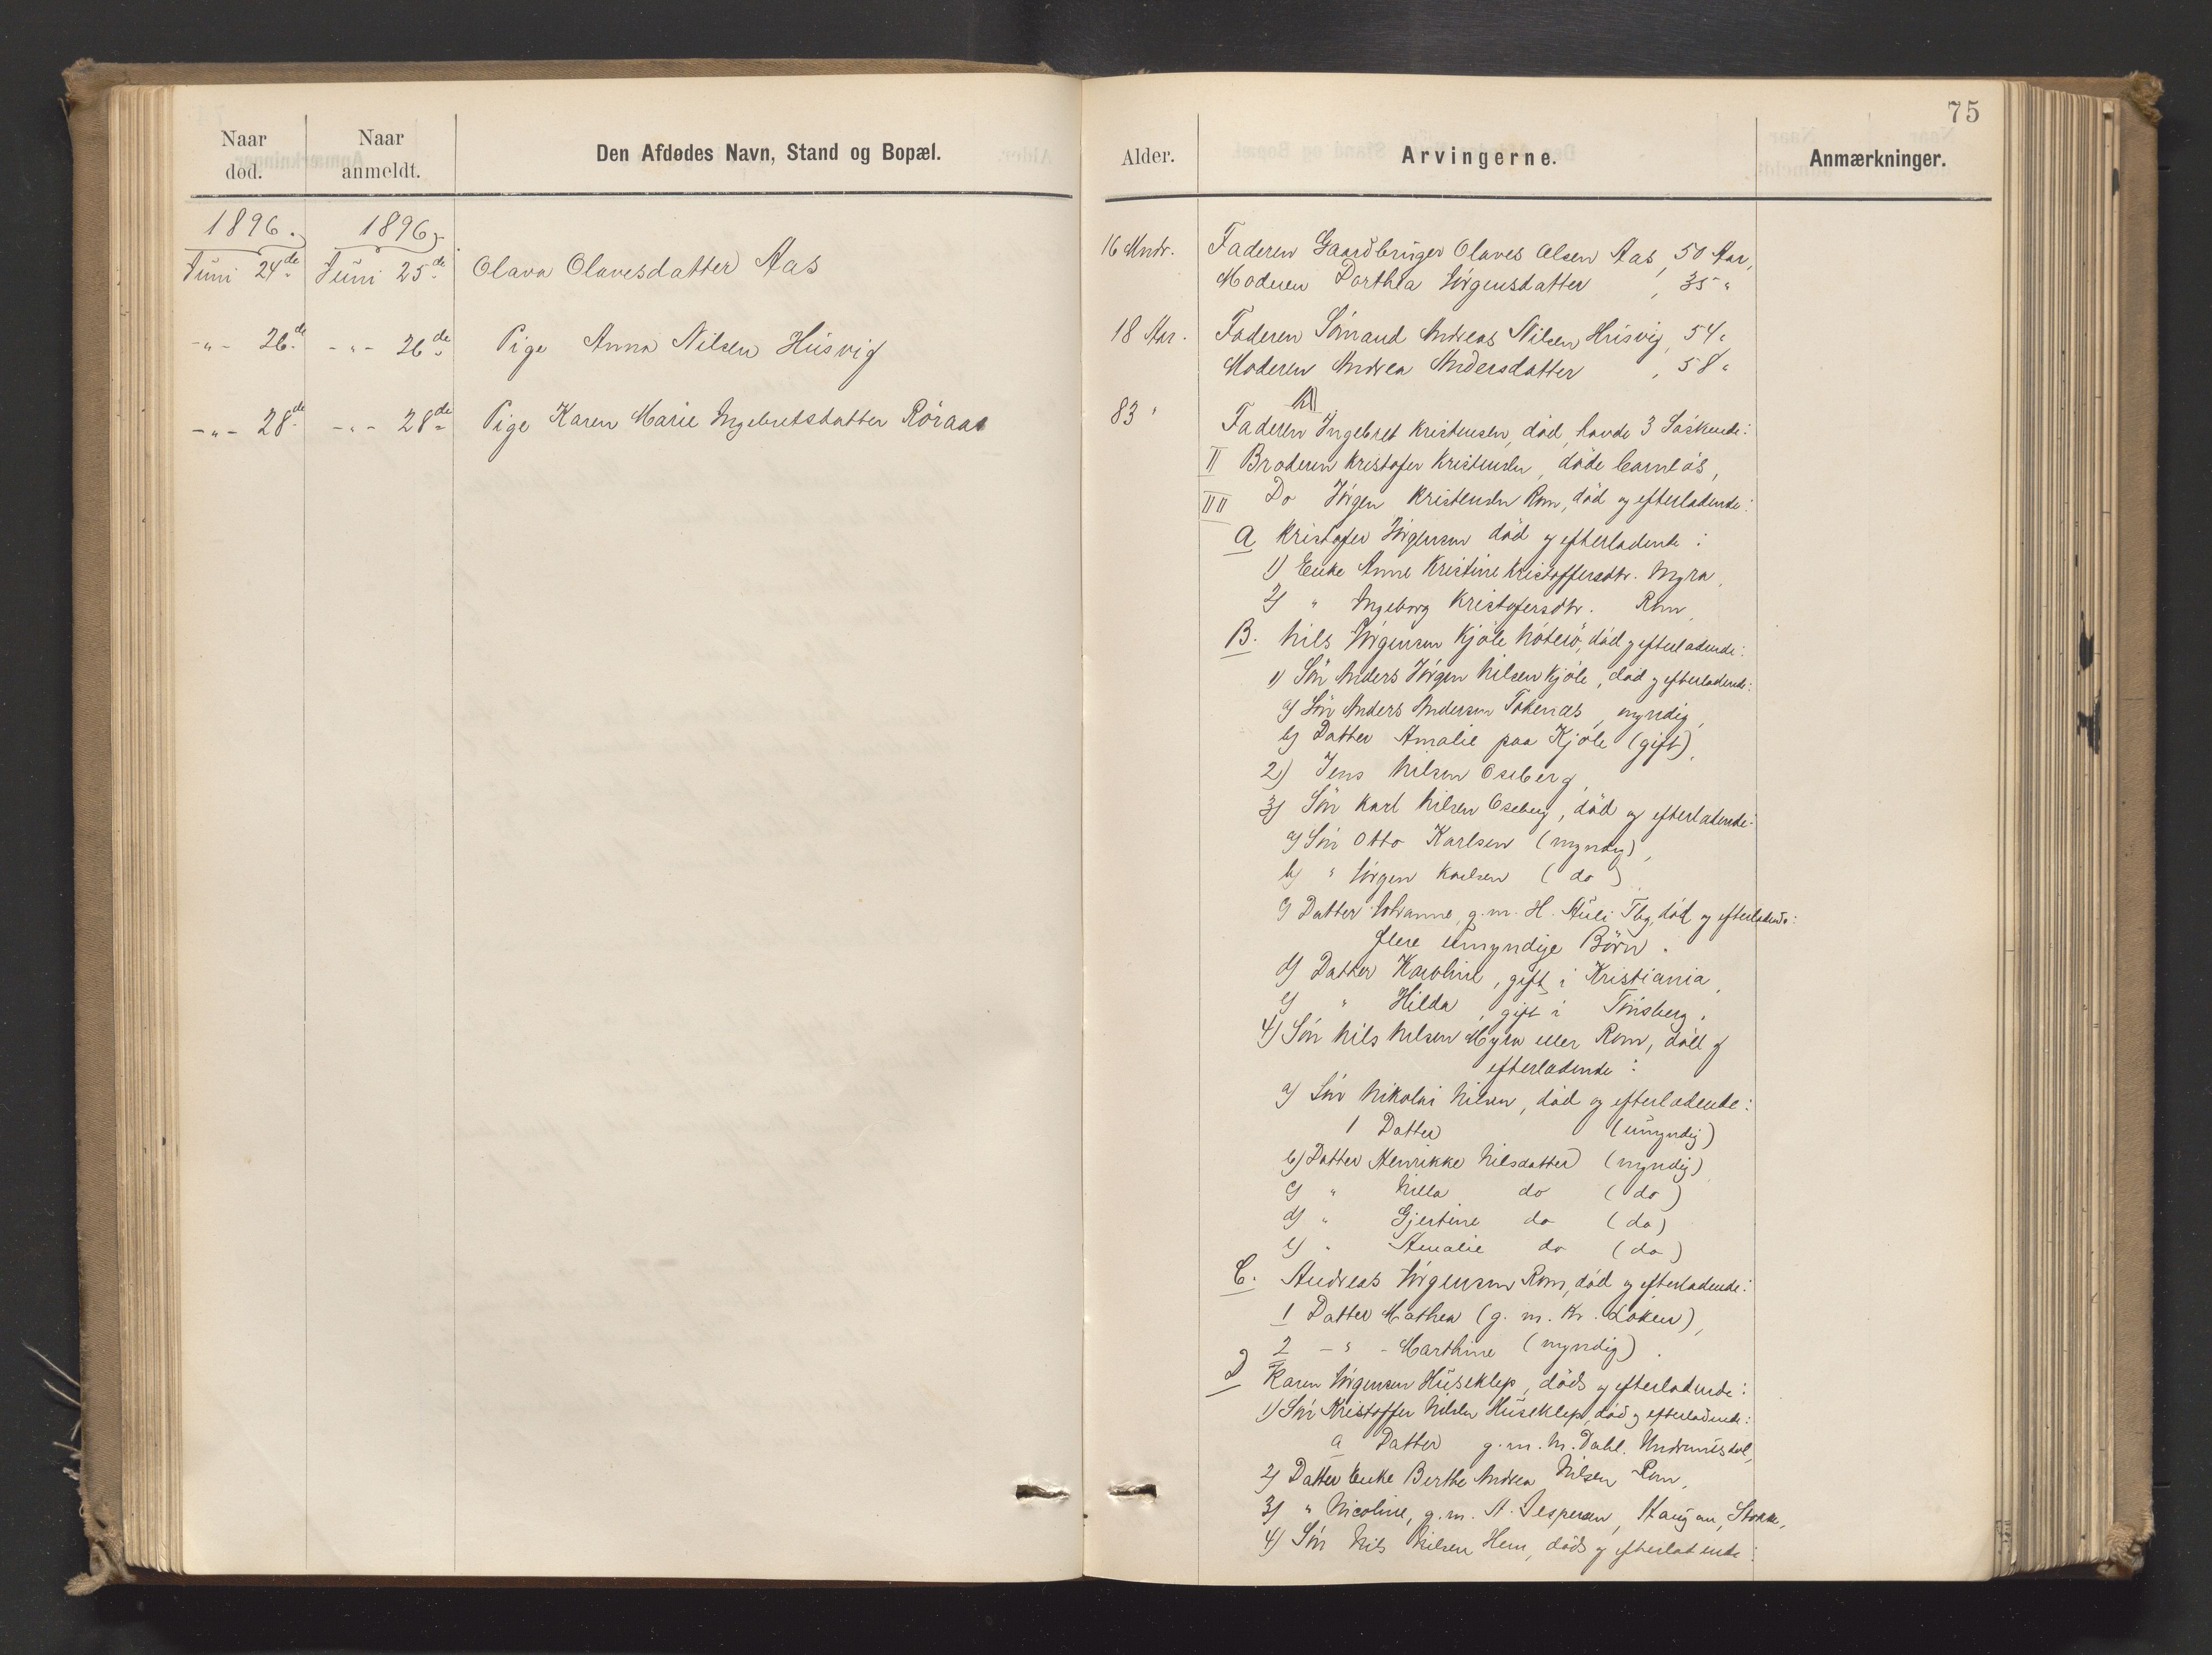 75
Naar død.
Naar anmeldt.
Den Afdødes Navn, Stand og Bopæl.
Alder.
Arvingerne.
Anmærkninger.
1896. 1896.
Juni 24de Juni 25de Olava Olavesdatter Aas
16 Mndr. Faderen Gaardbruger Olaves Olsen Aas, 50 Aar,
Moderen Dorthea Jörgensdatter, 35 "
-"- 26de -"- 26de Pige Anna Nilsen Husvig
18 Aar. Faderen Sömand Andreas Nilsen Husvig, 54 "
Moderen Andrea Andersdatter, 58 "
-"- 28de -"- 28de Pige Karen Marie Ingebretsdatter Röraas
83 "
Faderen Ingebret Kristensen, död, havde 3 Söskende:
II Broderen Kristofer Kristensen, döde barnlös,
Do Jörgen Kristensen Rom, död og efterladende:
A Kristofer Jörgensen död og efterladende:
1) Enke Anne Kristine Kristoffersdtr. Myra,
2) " Ingeborg Kristofersdtr. Rom,
B. Nils Jörgensen Kjöle Nöterö, död og efterladende:
1) Sön Anders Jörgen Nilsen Kjöle, död og efterladende:
a) Sön Anders Andersen, myndig,
b) Datter Amalie paa Kjöle (gift),
2) Jens Nilsen Oseberg,
3) Sön Karl Nilsen Oseberg, död og efterladende:
a) Sön Otto Karlsen (myndig),
b) " Jörgen Karlsen (do)
c) Datter Johanne, g.m. H. Auli Tbg, död og efterladende:
flere umyndige Börn.
d) Datter Karoline, gift i Kristiania,
e) " Hilda, gift i Tönsberg.
4) Sön Nils Nilsen Myra eller Rom, död og
efterladende:
a) Sön Nikolai Nilsen, död og efterladende:
1 Datter (umyndig)
b) Datter Henrikke Nilsdatter (myndig)
c) " Nilla do (do)
d) " Gjertine do (do)
e) " Amalie do (do)
C. Andreas Jörgensen Rom, död og efterladende:
1 Datter Mathea (g. m. Kr. Löken),
2 -"- Marthine (myndig).
D Karen Jörgensen Huseklep, död og efterladende:
1) Sön Kristoffer Nilsen Huseklep, död og efterladende:
a Datter g.m. N. Dahl.
2) Datter Enke Berthe Andrea Nilsen Rom,
3) " Nicoline, g.m. A. Jespersen, Haugan, Stokke,
4) Sön Nils Nilsen Hem, död og efterladende: